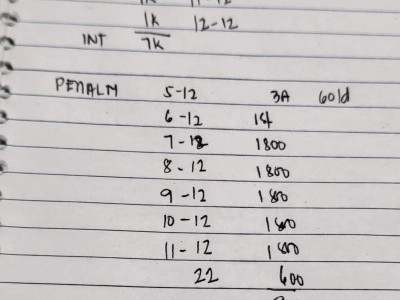 1K 12-12
INT 7K
PENALTY 5-12 3A Gold
6-12 14
7-12 1800
8-12 1800
9-12 1800
10-12 1800
11-12 1800
22 600